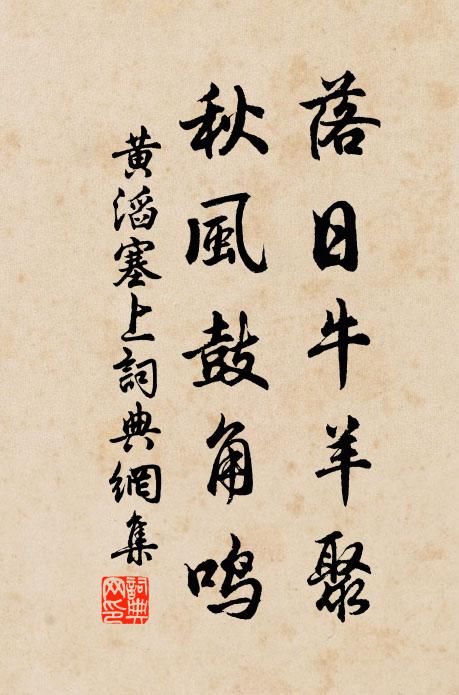 落日牛羊聚
秋風鼓角鳴
黃滔塞上詞典網集
詞典
网印